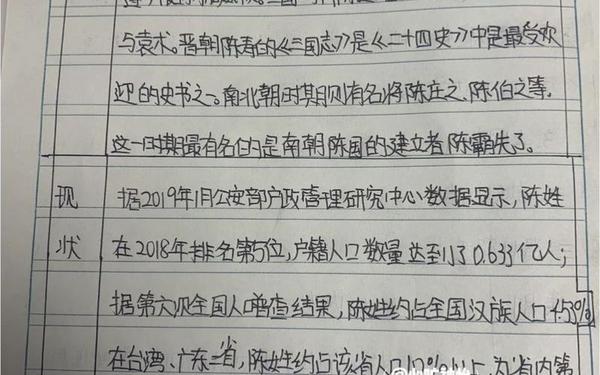 与袁术。晋朝陈寿的《三国志》是《二十四史》中是最受欢
迎的史书之一。南北朝时期则有名将陈庄之、陈伯之等。
这一时期最有名的是南朝陈国的建立者陈霸先了。
现状
据2019年1月公安部户政管理研究中心数据显示，陈姓
在2018年排名第5位，户籍人口数量达到了0.633亿人；
据第六次全国人口普查结果，陈姓约占全国汉族人口4.53%
在台湾、广东二省，陈姓约占该省人口10%以上，为省内第